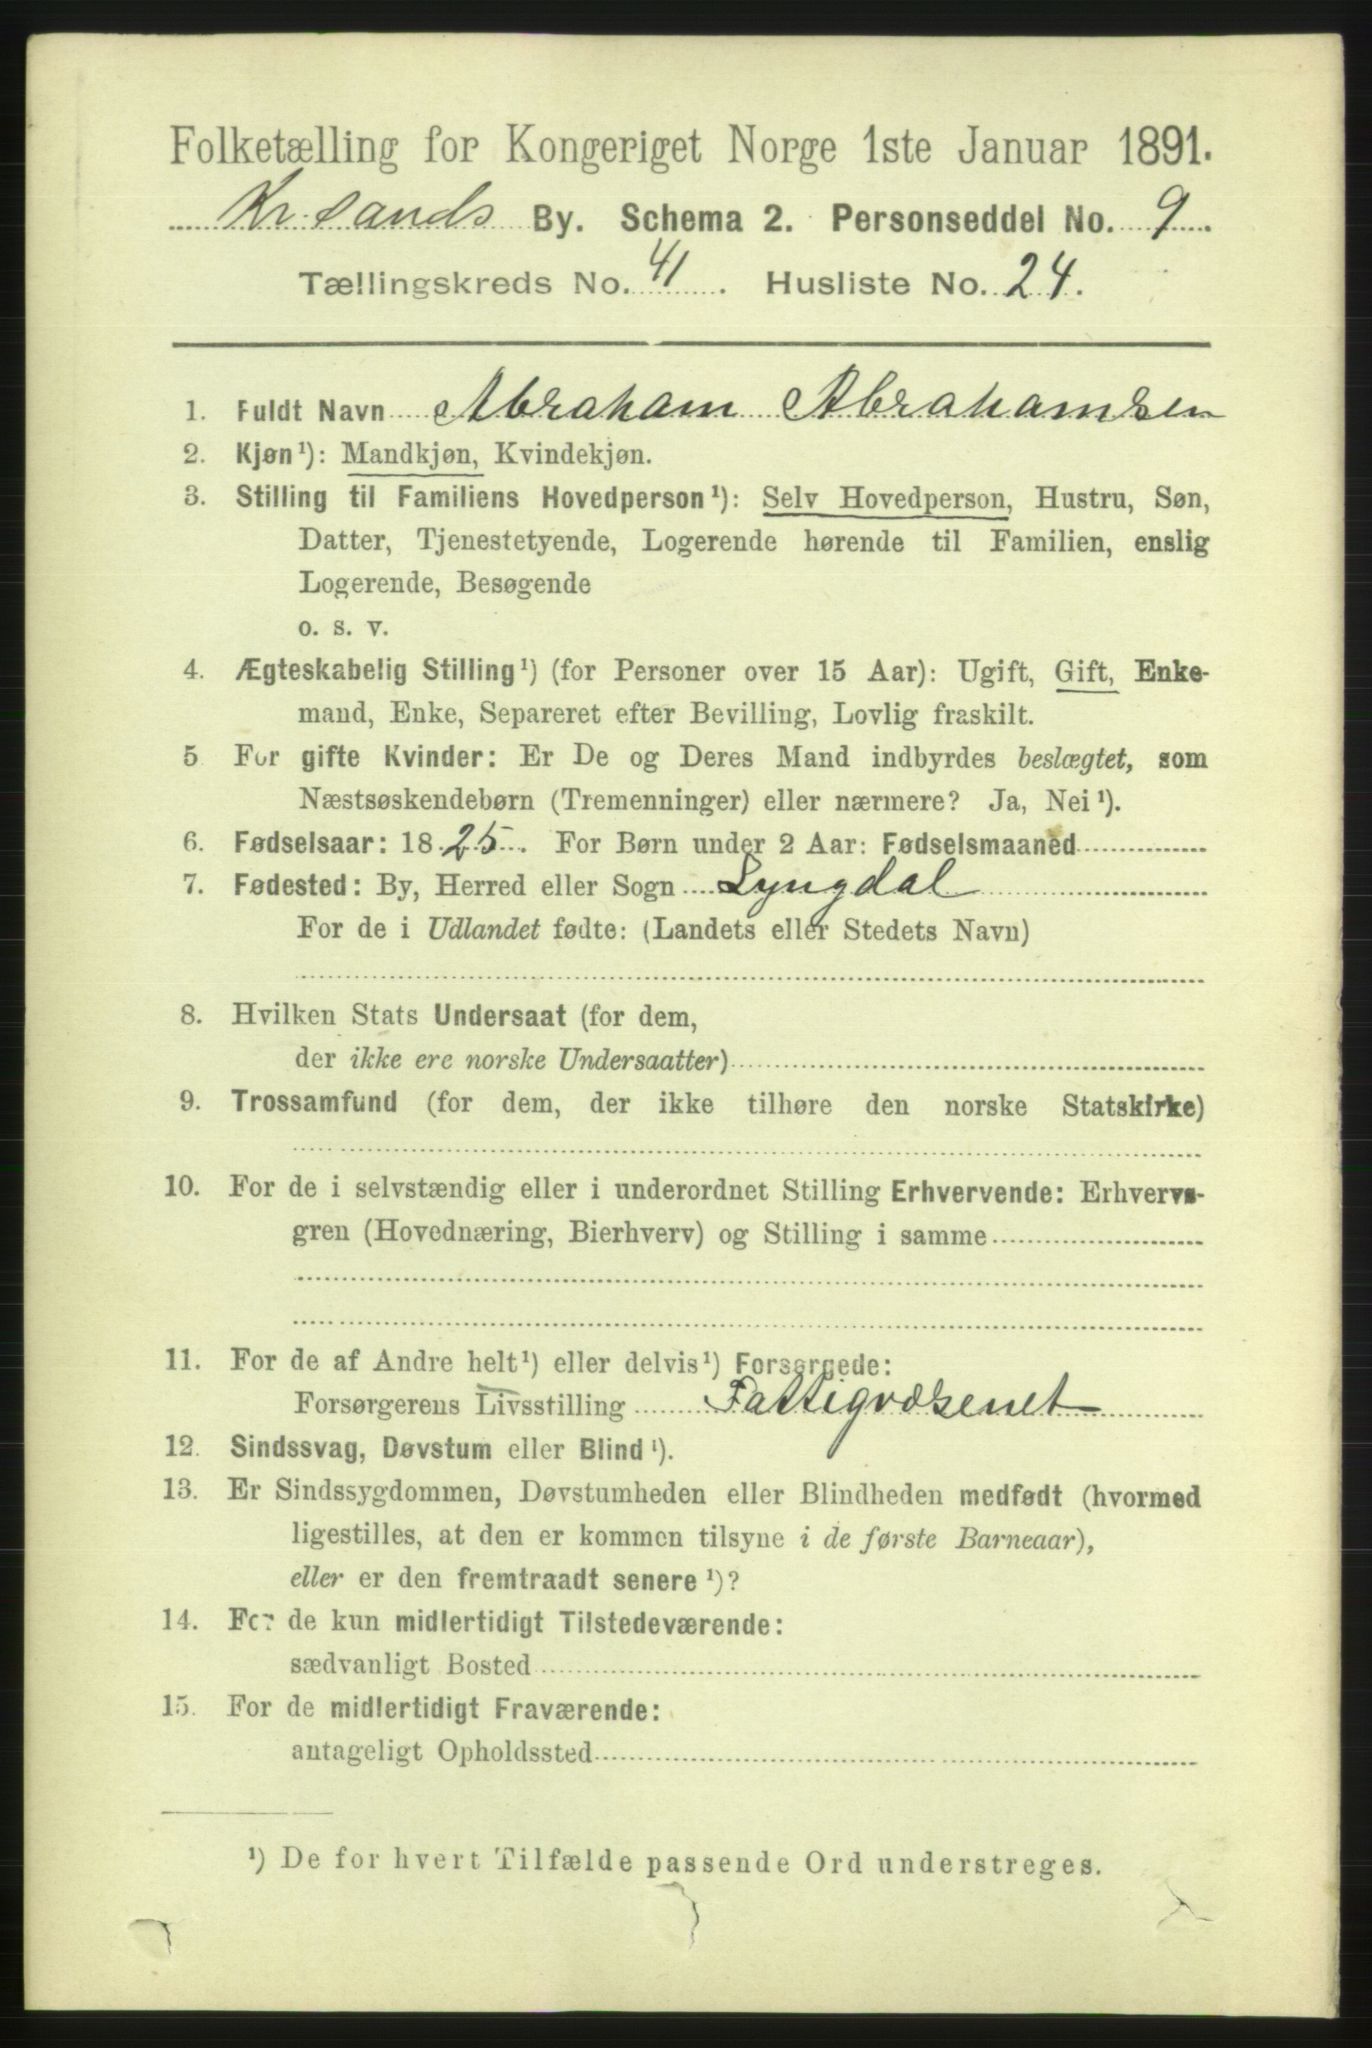 Folketælling for Kongeriget Norge 1ste Januar 1891.
Kr.sands By. Schema 2. Personseddel No. 9.
Tællingskreds No. 41. Husliste No. 24.
1. Fuldt Navn Abraham Abrahamsen
2. Kjøn¹): Mandkjøn, Kvindekjøn.
3. Stilling til Familiens Hovedperson¹): Selv Hovedperson, Hustru, Søn,
Datter, Tjenestetyende, Logerende hørende til Familien, enslig
Logerende, Besøgende
o. s. v.
4. Ægteskabelig Stilling¹) (for Personer over 15 Aar): Ugift, Gift, Enke-
mand, Enke, Separeret efter Bevilling, Lovlig fraskilt.
5 For gifte Kvinder: Er De og Deres Mand indbyrdes beslægtet, som
Næstsøskendebørn (Tremenninger) eller nærmere? Ja, Nei¹).
6. Fødselsaar: 1825. For Børn under 2 Aar: Fødselsmaaned
7. Fødested: By, Herred eller Sogn Lyngdal
For de i Udlandet fødte: (Landets eller Stedets Navn)
8. Hvilken Stats Undersaat (for dem,
der ikke ere norske Undersaatter)
9. Trossamfund (for dem, der ikke tilhøre den norske Statskirke)
10. For de i selvstændig eller i underordnet Stilling Erhvervende: Erhvervs-
gren (Hovednæring, Bierhverv) og Stilling i samme
11. For de af Andre helt¹) eller delvis¹) Forsørgede:
Forsørgerens Livsstilling Fattigvæsenet
12. Sindssvag, Døvstum eller Blind¹).
13. Er Sindssygdommen, Døvstumheden eller Blindheden medfødt (hvormed
ligestilles, at den er kommen tilsyne i de første Barneaar),
eller er den fremtraadt senere¹)?
14. For de kun midlertidigt Tilstedeværende:
sædvanligt Bosted
15. For de midlertidigt Fraværende:
antageligt Opholdssted
¹) De for hvert Tilfælde passende Ord understreges.